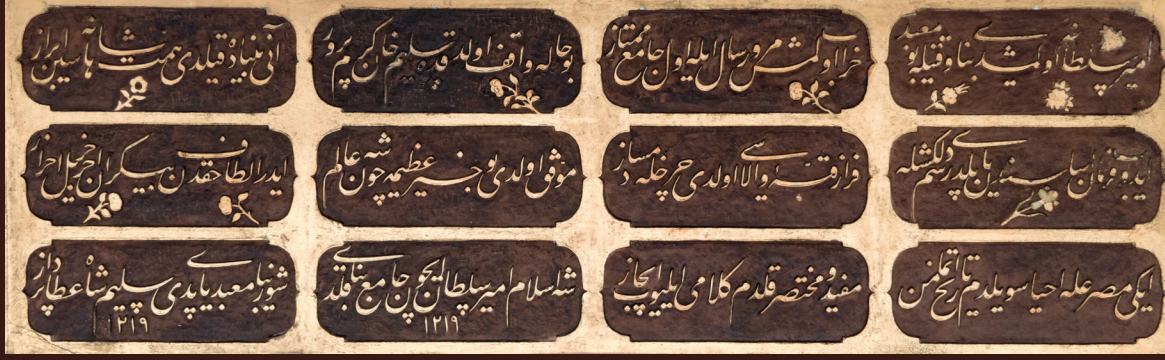 امیر سلطانه اولمشدی بنا وقتیله بو معبد
خراب اولمش مرور سال ایله اول جامع ممتاز
بو حاله واقف اولدقده سلیم خان کرم پرور
آنی بنیاد قیلدی همت شاهانه سین ابراز
ایدوب فرمان اساسندن یاپلدی رسم دلکشله
فراز قبهٔ والاسی اولدی چرخله دمساز
موفق اولدی بو خیر عظیمه چون شه عالم
ایدر الطاف حقدن بیکران اجر جزیل احراز
ایکی مصرعله احیا سویلدم تاریخ اتمامن
مفید و مختصر قلدم کلامی ایلیوب ایجاز
شه اسلام امیر سلطان ایچون جامع بنا قلدی
١٢١٩
شو زیبا معبدی یاپدی سلیم شاه عطا پرداز
١٢١٩